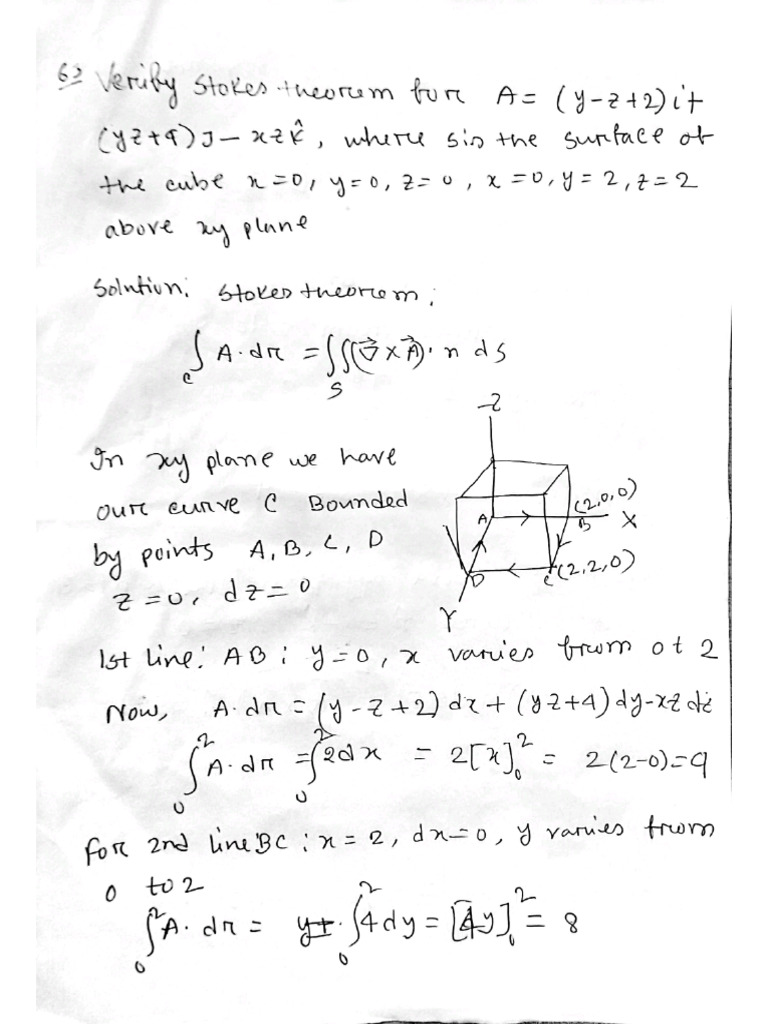 6> Verify Stokes theorem for A = (y-z+2)i+
(yz+4)J - xzk̂, where s is the surface of
the cube x=0, y=0, z=0, x=0, y=2, z=2
above xy plane
Solution: Stokes theorem:
∫_C A·dr = ∬_S (∇⃗ × A⃗)·n ds
Z
In xy plane we have
our curve C Bounded
by points A, B, C, D
z=0, dz=0
A
B
(2,0,0)
X
D
C(2,2,0)
Y
1st line: AB: y=0, x varies from 0 t 2
Now, A·dr = (y-z+2)dx + (yz+4)dy - xz dz
∫_0^2 A·dr = ∫_0^2 2dx = 2[x]_0^2 = 2(2-0) = 4
for 2nd line BC: x=2, dx=0, y varies from
0 to 2
∫_0^2 A·dr = ∫_0^2 4dy = [4y]_0^2 = 8